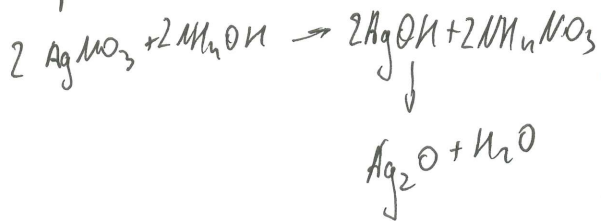 2 AgNO₃ + 2NH₄OH → 2AgOH + 2NH₄NO₃
↓
Ag₂O + H₂O